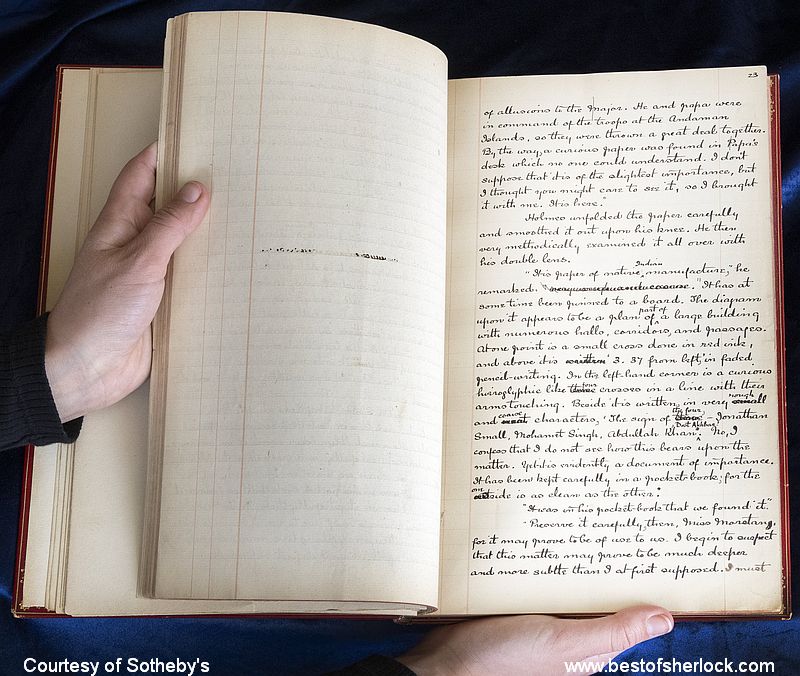 23
of allusions to the Major. He and papa were
in command of the troops at the Andaman
Islands, so they were thrown a great deal together.
By the way, a curious paper was found in Papa's
desk which no one could understand. I dont
suppose that it is of the slightest importance, but
I thought you might care to see it, so I brought
it with me. It is here."
Holmes unfolded the paper carefully
and smoothed it out upon his knee. He then
very methodically examined it all over with
his double lens.
Indian
"It is paper of native manufacture," he
remarked. "It has at
some time been pinned to a board. The diagram
part of
upon it appears to be a plan of a large building
with numerous halls, corridors, and passages.
At one point is a small cross done in red ink,
and above it is written '3.37 from left,' in faded
pencil-writing. In the left hand corner is a curious
four
hieroglyphic like crosses in a line with their
rough
arms touching. Beside it is written, in very small
coarse the four,
and characters, 'The sign of – Jonathan
Dost Akbar
Small, Mahomet Singh, Abdullah Khan. No, I
confess that I do not see how this bears upon the
matter. Yet it is evidently a document of importance.
It has been kept carefully in a pocket-book; for the
one
side is as clean as the other."
"It was in his pocket-book that we found it."
"Preserve it carefully, then, Miss Morstan,
for it may prove to be of use to us. I begin to suspect
that this matter may prove to be much deeper
and more subtle than I at first supposed. I must
Courtesy of Sotheby's
www.bestofsherlock.com